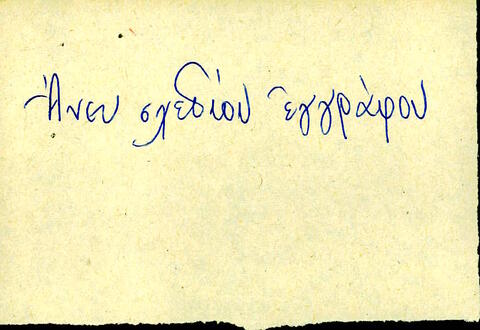 Ἄνευ σχεδίου ἐγγράφου